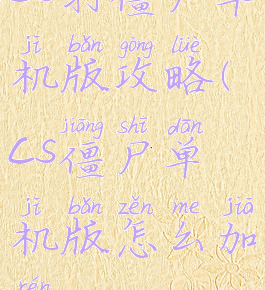 CS打僵尸单
jī bǎn gōng lüè
机版攻略(
jiāng shī dān
CS僵尸单
jī bǎn zěn me jiā
机版怎么加
rén